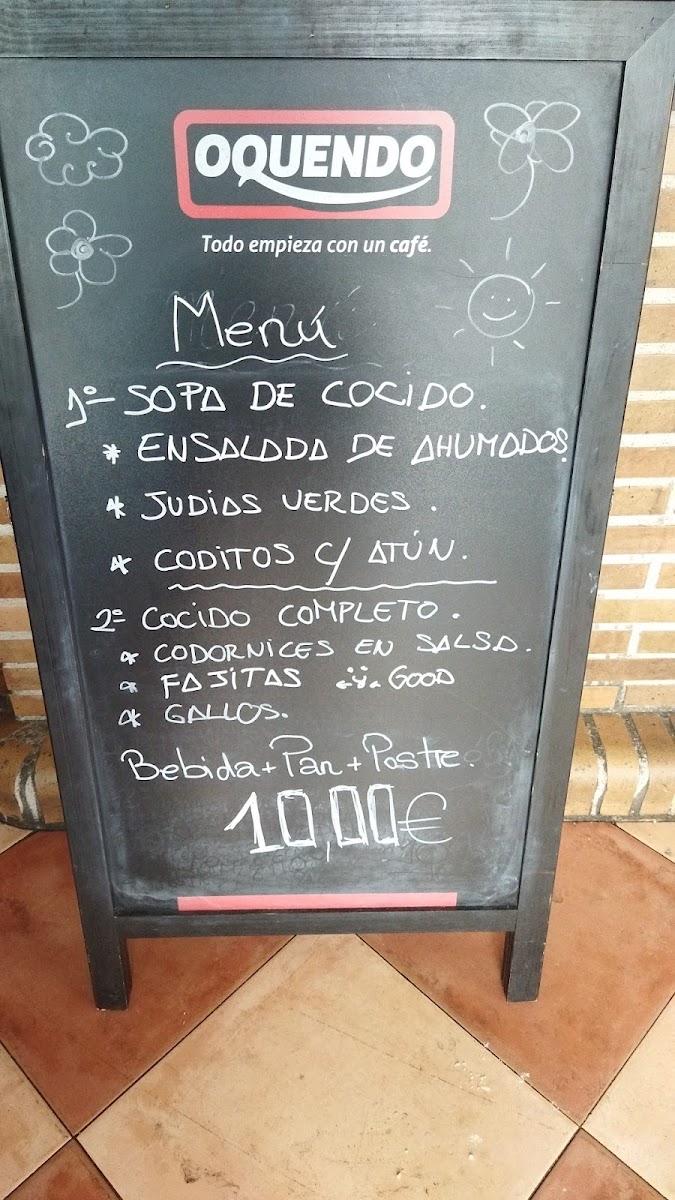 OQUENDO
Todo empieza con un café.
Menú
1º- SOPA DE COCIDO.
* ENSALADA DE AHUMADOS.
* JUDIAS VERDES.
* CODITOS C/ ATÚN.
2º COCIDO COMPLETO.
* CODORNICES EN SALSA.
* FAJITAS GOOD
* GALLOS.
Bebida + Pan + Postre.
10,00€